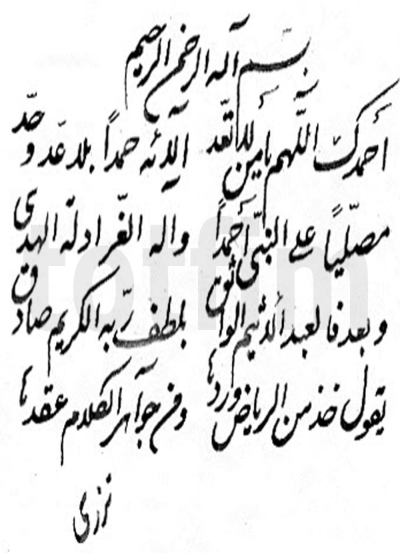 بسم الله الرحمن الرحيم
أحمدك اللّهم يامن لا تعّد آلائه حمداً بلا عّد و حّد
مصلّياً على النبّي أحمداً واله الغّر ادلة الهدى
و بعد فالعبد الأثيم الواثق بلطف ربّه الكريم صادق
يقول خذ من الرياض وردها ومن جواهر الكلام عقدها